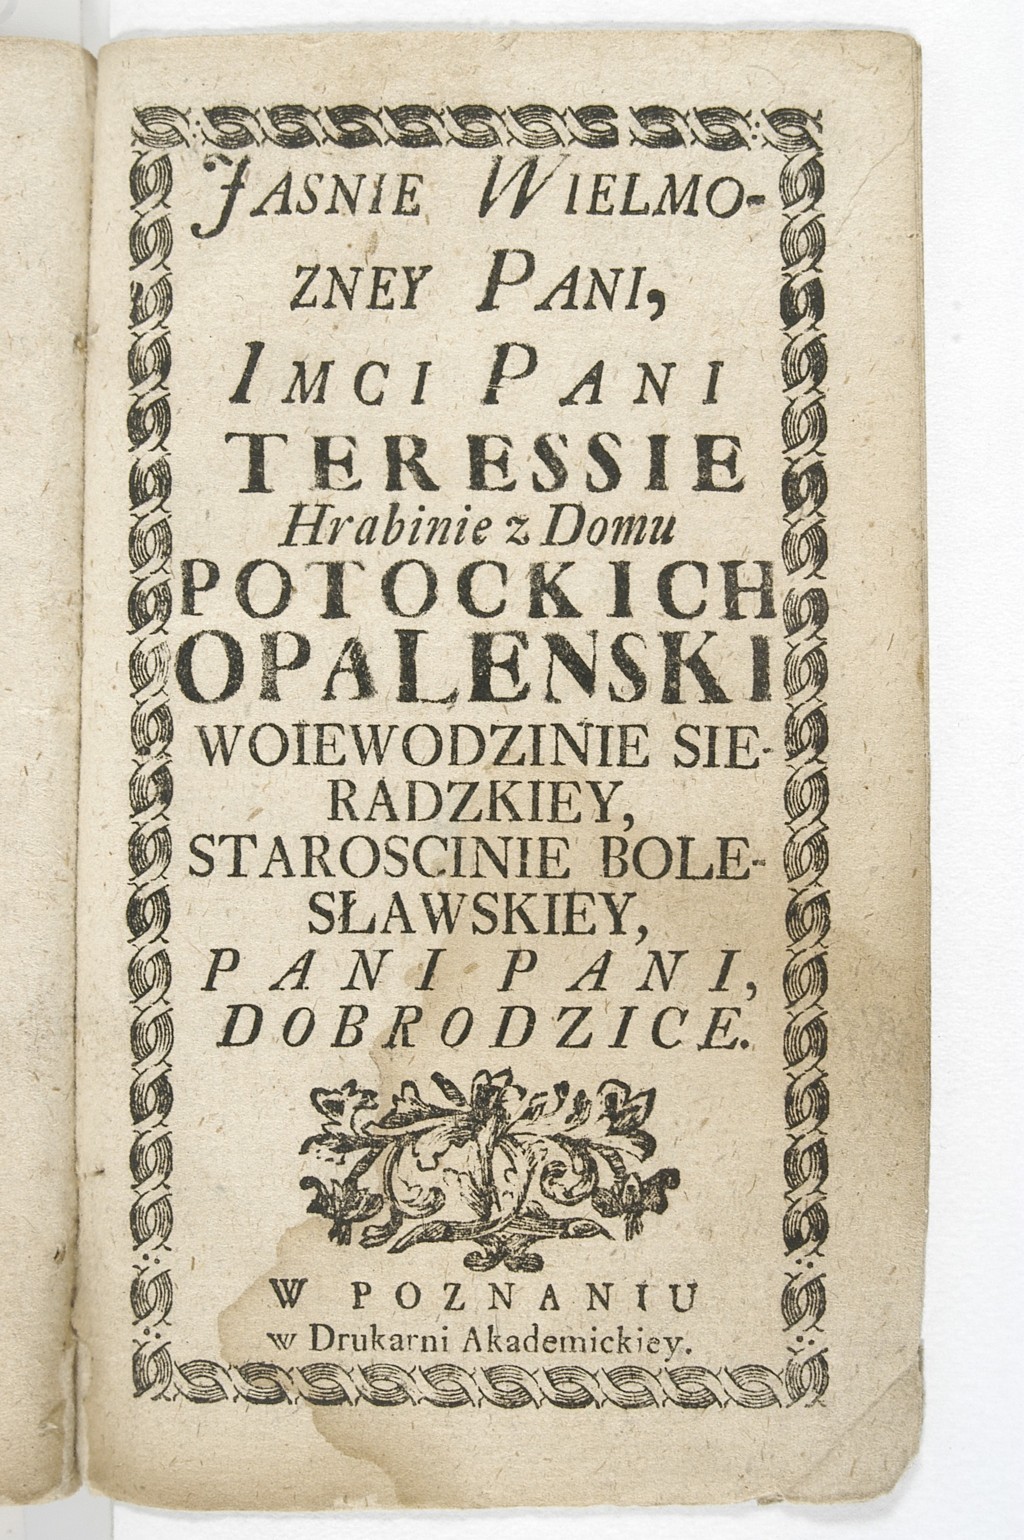 JASNIE WIELMO-
ZNEY PANI,
IMCI PANI
TERESSIE
Hrabinie z Domu
POTOCKICH
OPALENSKI
WOIEWODZINIE SIE-
RADZKIEY,
STAROSCINIE BOLE-
SŁAWSKIEY,
PANI PANI,
DOBRODZICE.
W POZNANIU
w Drukarni Akademickiey.